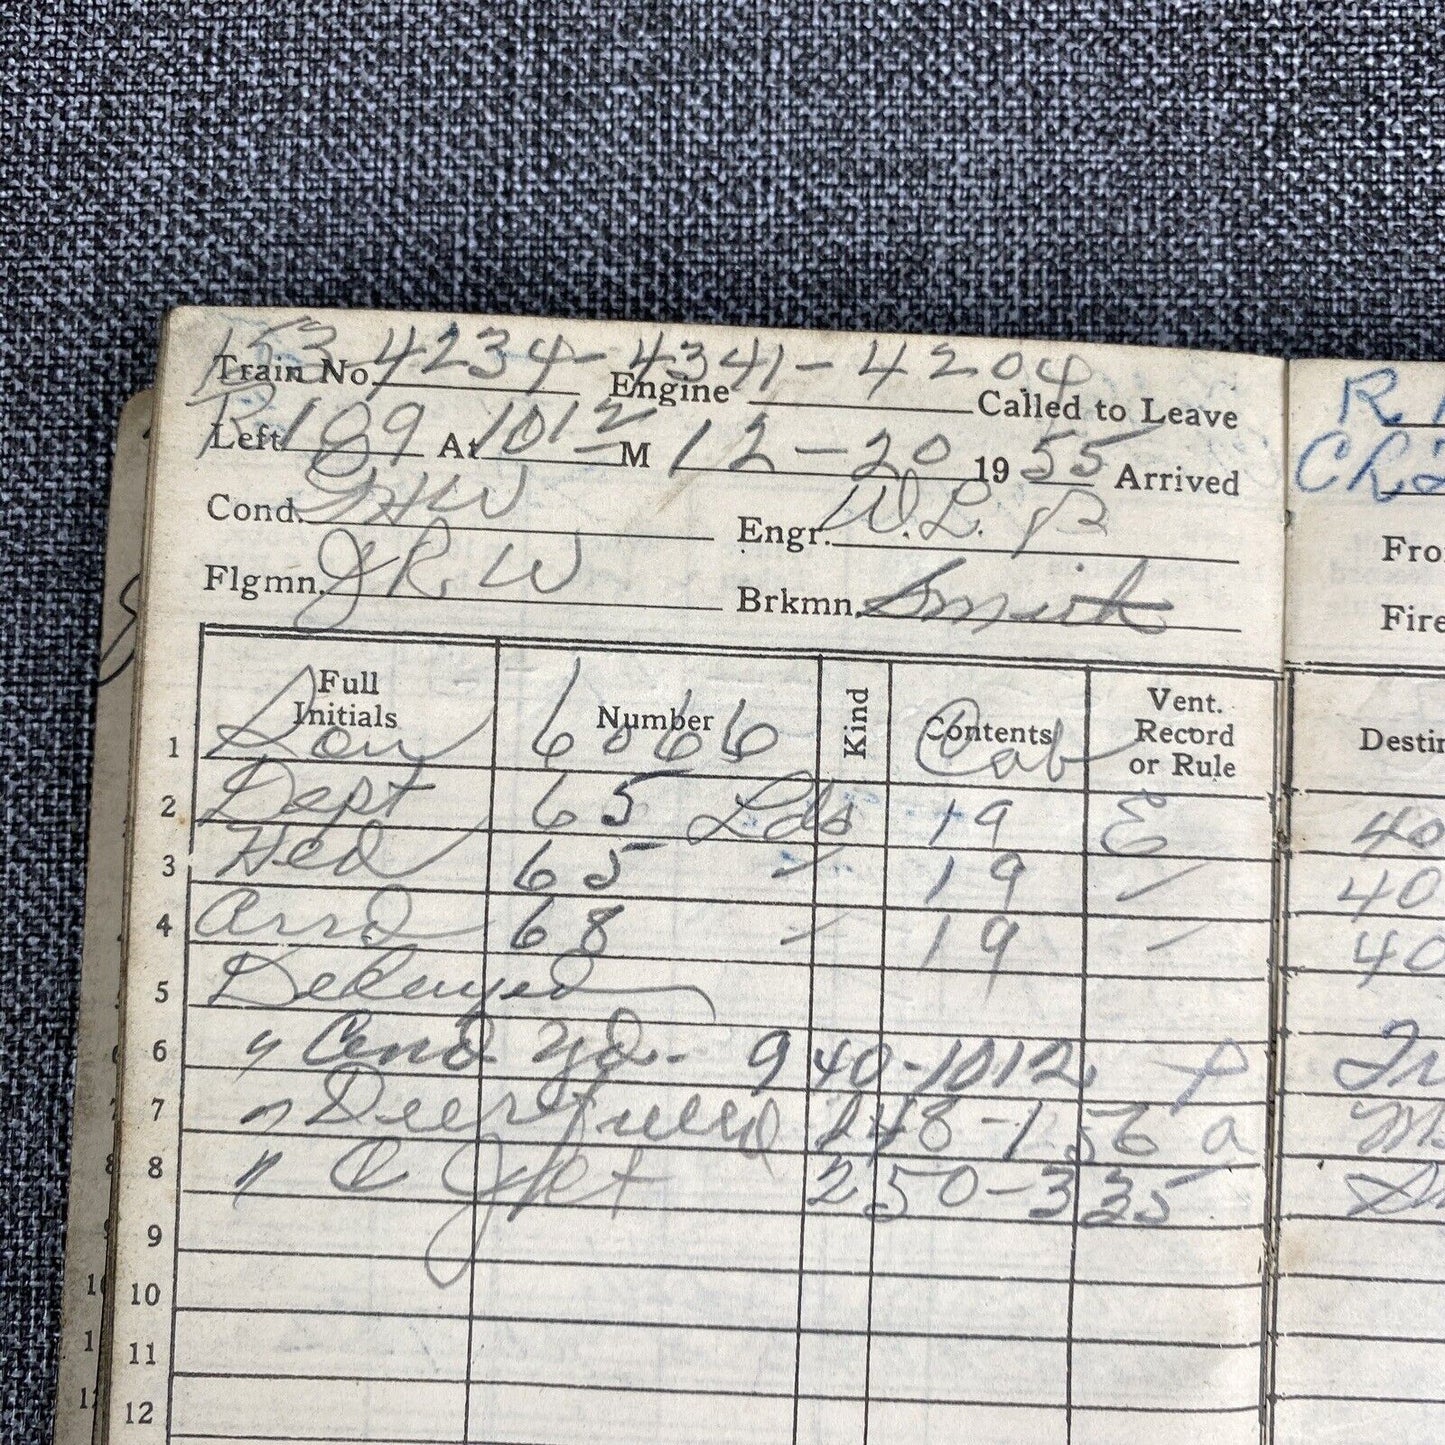 153 4234-4341-4204
Train No. Engine Called to Leave
Left 189 At 1012 M 12-20 1955 Arrived
Cond. Engr. W.L.B
Flgmn. J.R.W Brkmn. Smith
Full Initials Number Kind Contents Vent. Record or Rule Destin
1 Sou 6066 Cab
2 Dept 65 Lds 19 E 40
3 Hed 65 " 19 " 40
4 Arrd 68 " 19 " 40
5 Delayed
6 " And Yd - 940-1012 P
7 " Deerfield 148-156 a
8 " 250-335
9
10
11
12
Fro
Fire